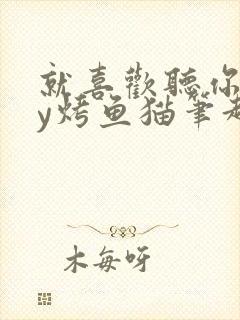 就喜歡聽你
y烤鱼猫笔
木每呀